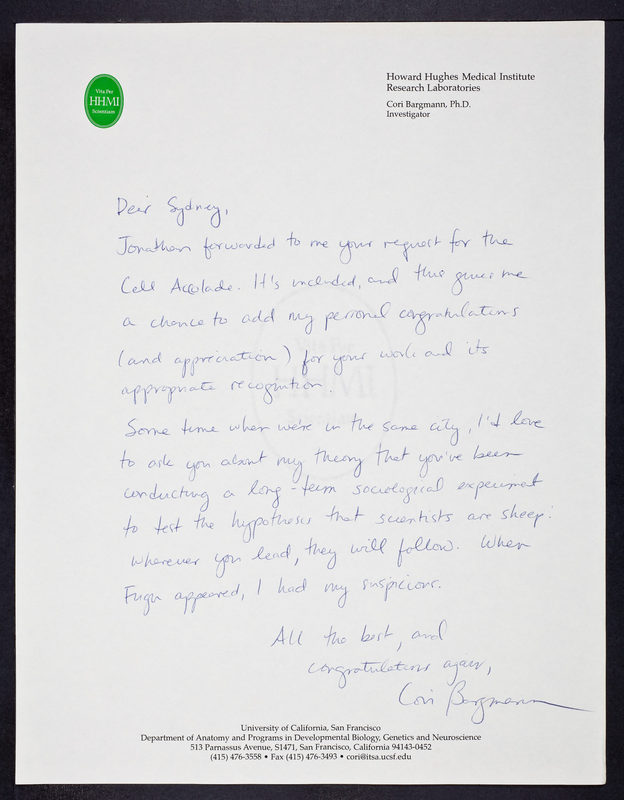 Vita Per
HHMI
Scientiam
Howard Hughes Medical Institute
Research Laboratories
Cori Bargmann, Ph.D.
Investigator
Dear Sydney,
Jonathan forwarded to me your request for the
Cell Accolade. It's included, and this gives me
a chance to add my personal congratulations
(and appreciation) for your work and its
appropriate recognition.
Some time when we're in the same city, I'd love
to ask you about my theory that you've been
conducting a long-term sociological experiment
to test the hypothesis that scientists are sheep:
wherever you lead, they will follow. When
Fugu appeared, I had my suspicions.
All the best, and
congratulations again,
Cori Bargmann
University of California, San Francisco
Department of Anatomy and Programs in Developmental Biology, Genetics and Neuroscience
513 Parnassus Avenue, S1471, San Francisco, California 94143-0452
(415) 476-3558 • Fax (415) 476-3493 • cori@itsa.ucsf.edu